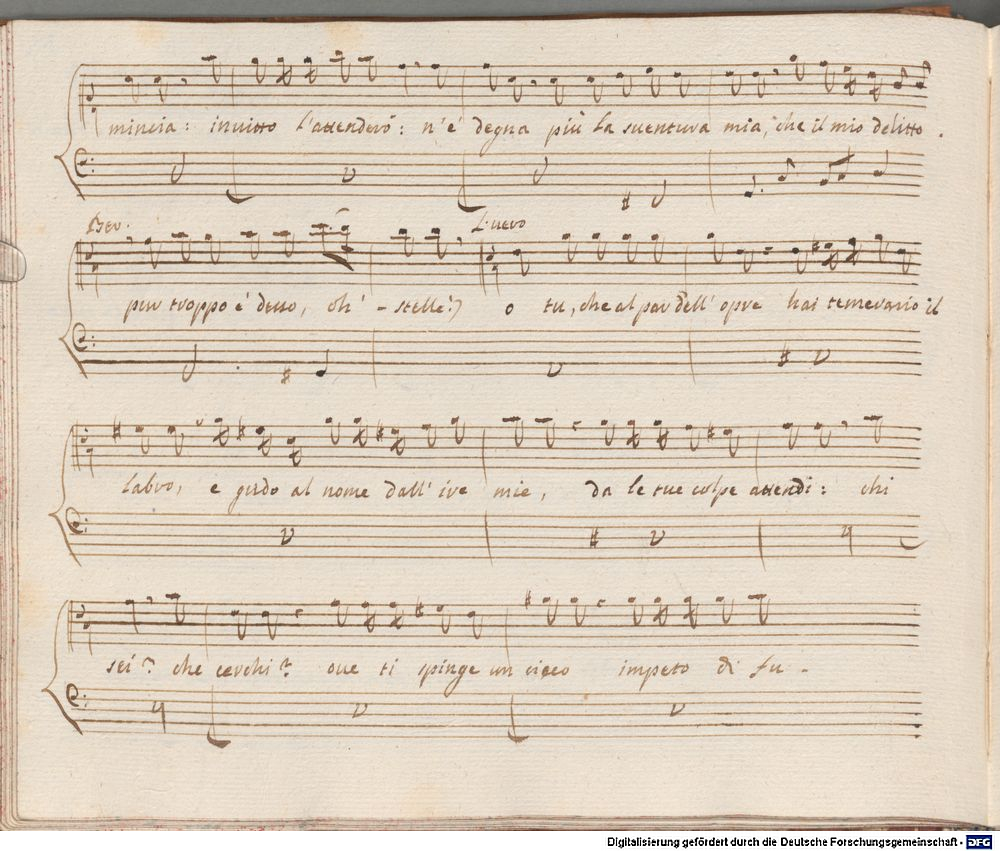 mincia: inuitto l'attenderò: n'è degna più la suentura mia, che il mio delitto.
Ber.
L'uero
pur troppo è desso, oh' - stelle!) o tu, che al par dell' opre hai temerario il
labro, e grido al nome dall' ire mie, da le tue colpe attendi: chi
sei? che cerchi? oue ti spinge un cieco impeto di fu -
Digitalisierung gefördert durch die Deutsche Forschungsgemeinschaft - DFG